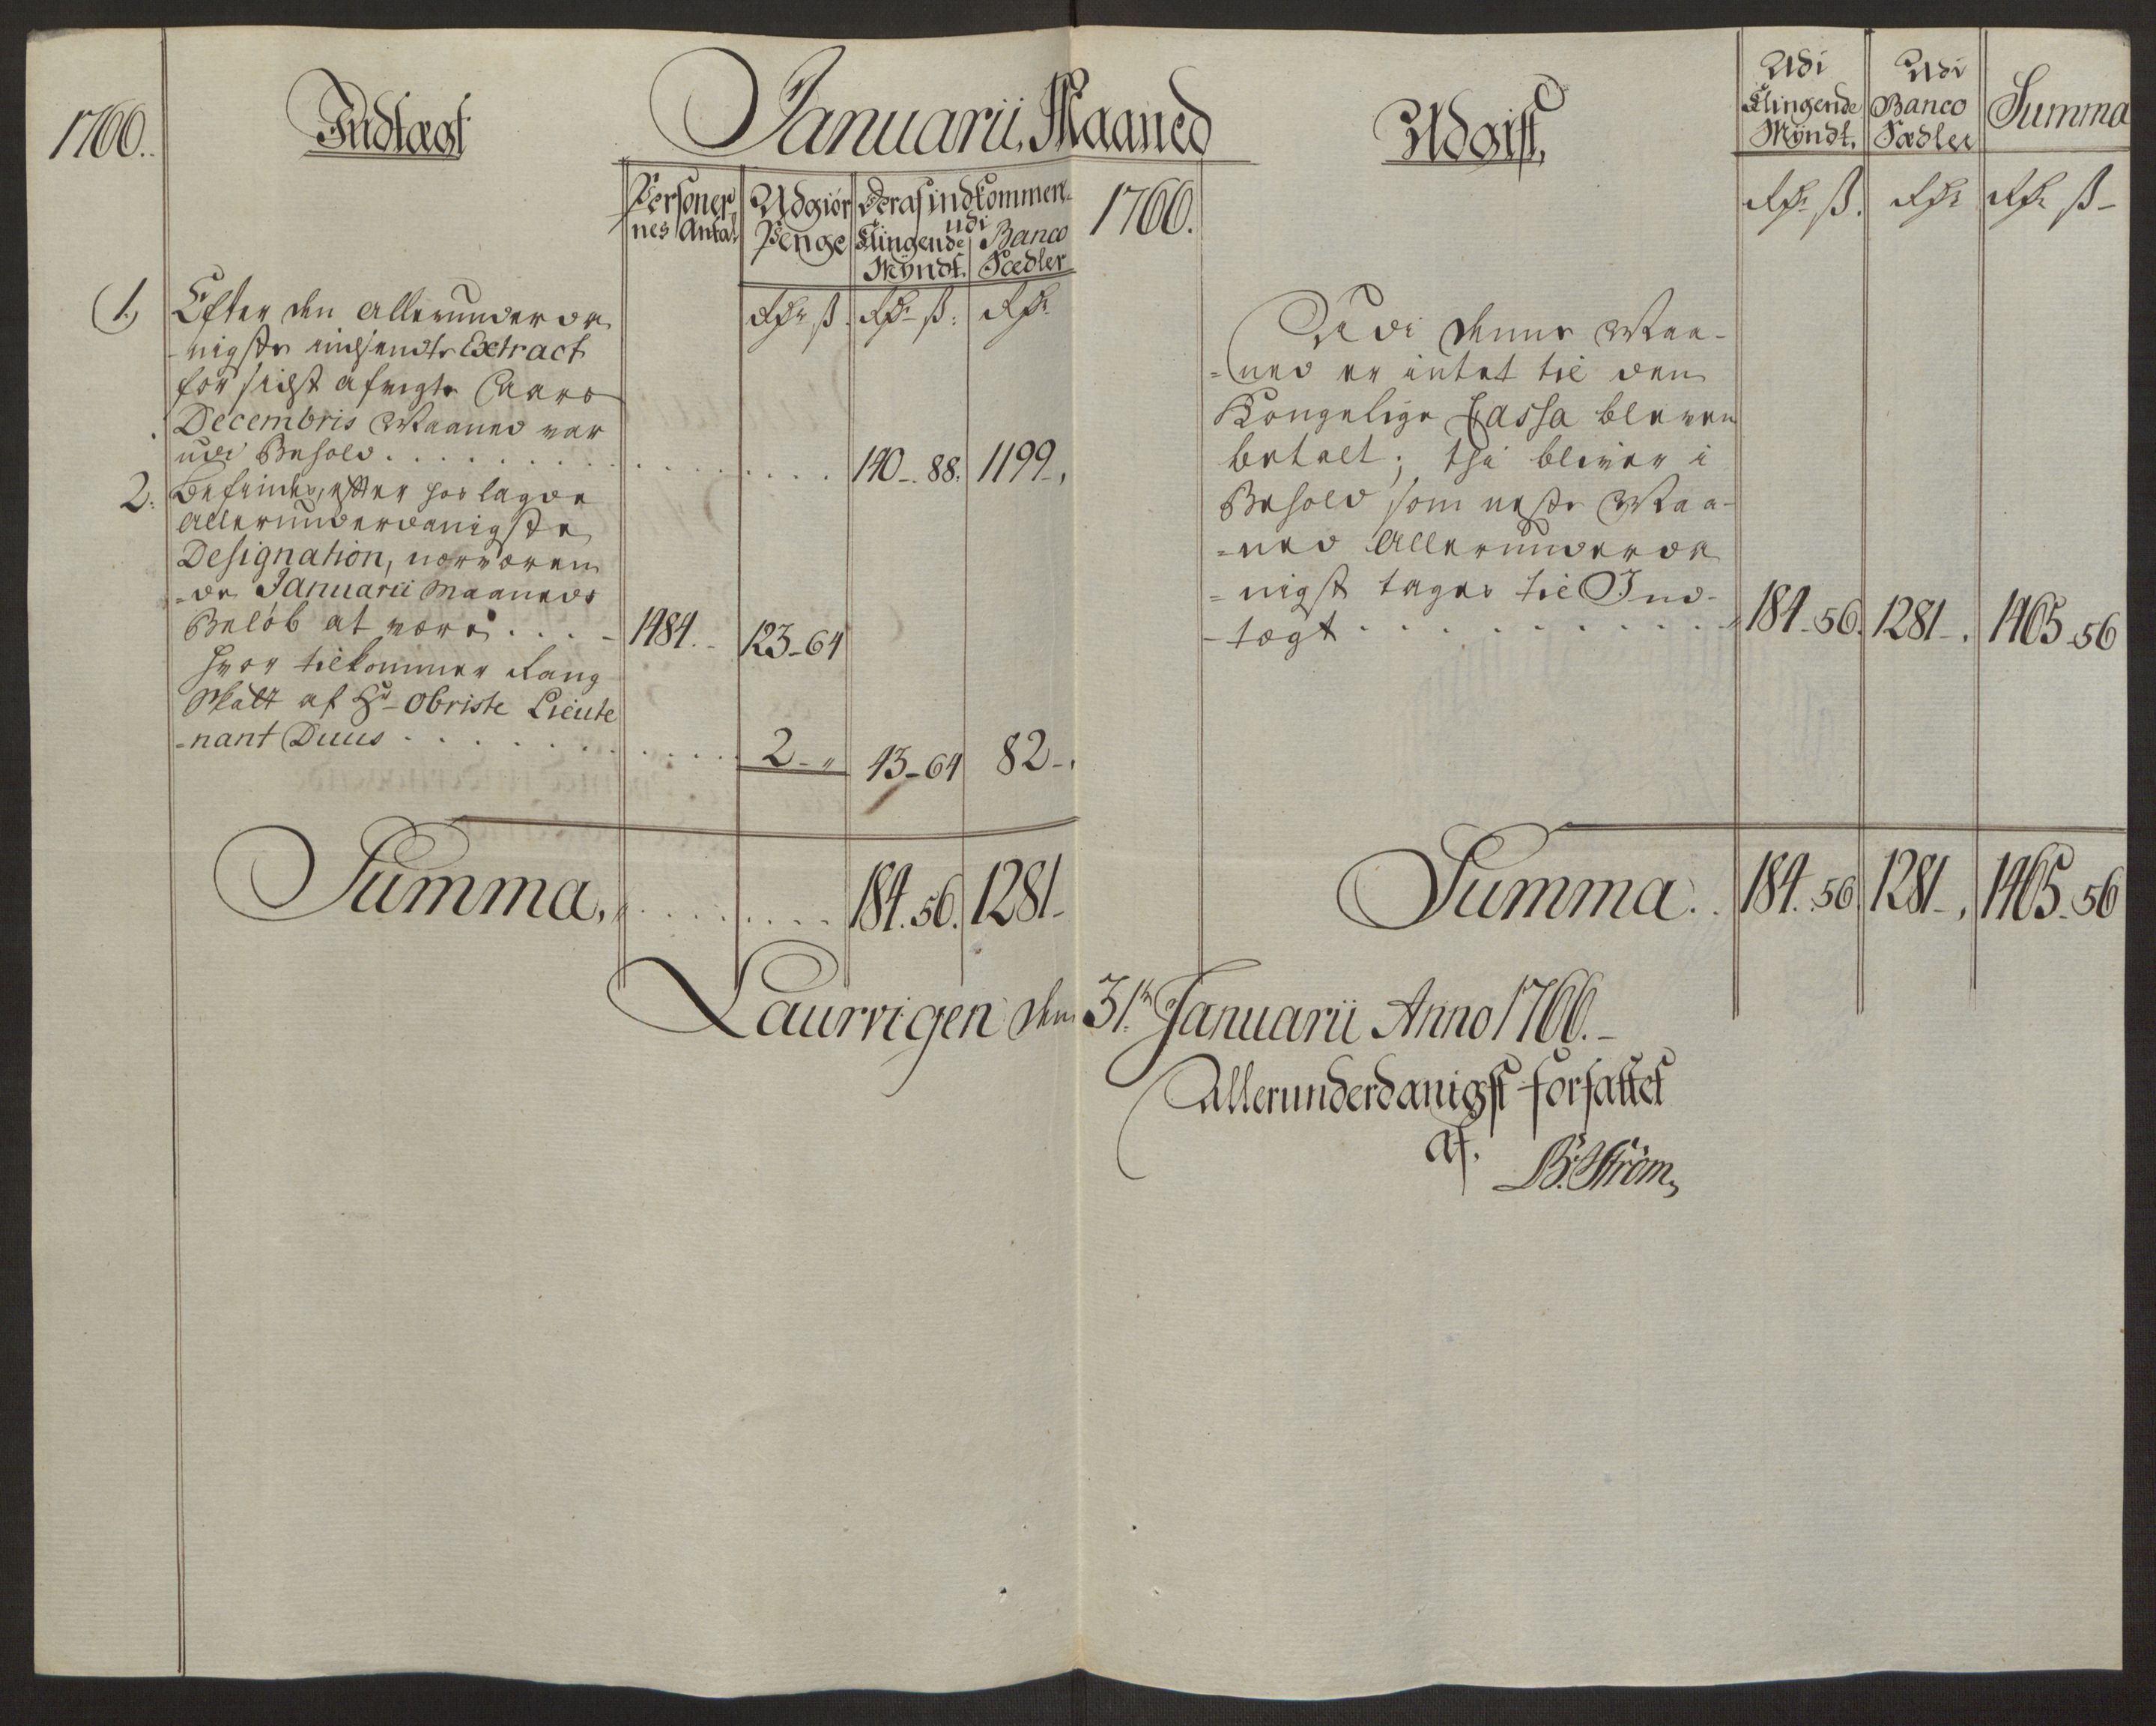 Januarii Maaned
1766.
Indtægt
Personer-
nes Antal
Udgiör
Penge
Deraf indkommen
udi
Klingende
Myndt.
Banco
Sædler
Rdr ß. Rdr ß. Rdr
1. Efter den allerunderda
-nigste indsendte Extract
for sidst afvigte Aars
Decembris Maaned var
udi Behold . . . 140-.88. 1199-,
2. Befindes, efter hoslagde
allerunderdanigste
Designation, nærværen
-de Januarii Maaneds
Beløb at være . . . . - 1484.- 123-64
hvor tilkommer Rang
Skatt af Hr Obriste Lieute
-nant Duus . . . 2-„ 43-64 82-,
Summa, . . . 184.56. 1281-
1766.
Udgift,
Udi
Klingende
Myndt.
Udi
Banco
Sædler
Summa
Rdr ß. Rdr Rdr ß-
Udi denne Maa-
=ned er intet til den
Kongelige Cassa bleven
betalt; thi bliver i
Behold som neste Maa-
=ned allerunderda
=nigst tages til Ind-
-tægt . . . 184-56. 1281-. 1465-56
Summa. . 184.56. 1281-, 1465-56
Laurvigen den 31te Januarii Anno 1766.-
Allerunderdanigst forfattet
af.
B. Ström,